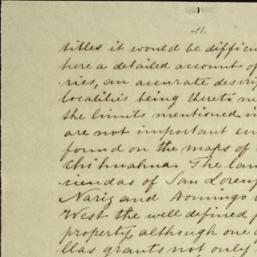 -11-
titles it would be difficu
here a detailed account of
ries, an accurate descri
localities being thereto n
the limits mentioned in
are not important en
found on the maps of
Chihuahua. The lan
ciendas of San Loren
Nariz and Domingo
West the well defined p
property, although one o
llas grants not only